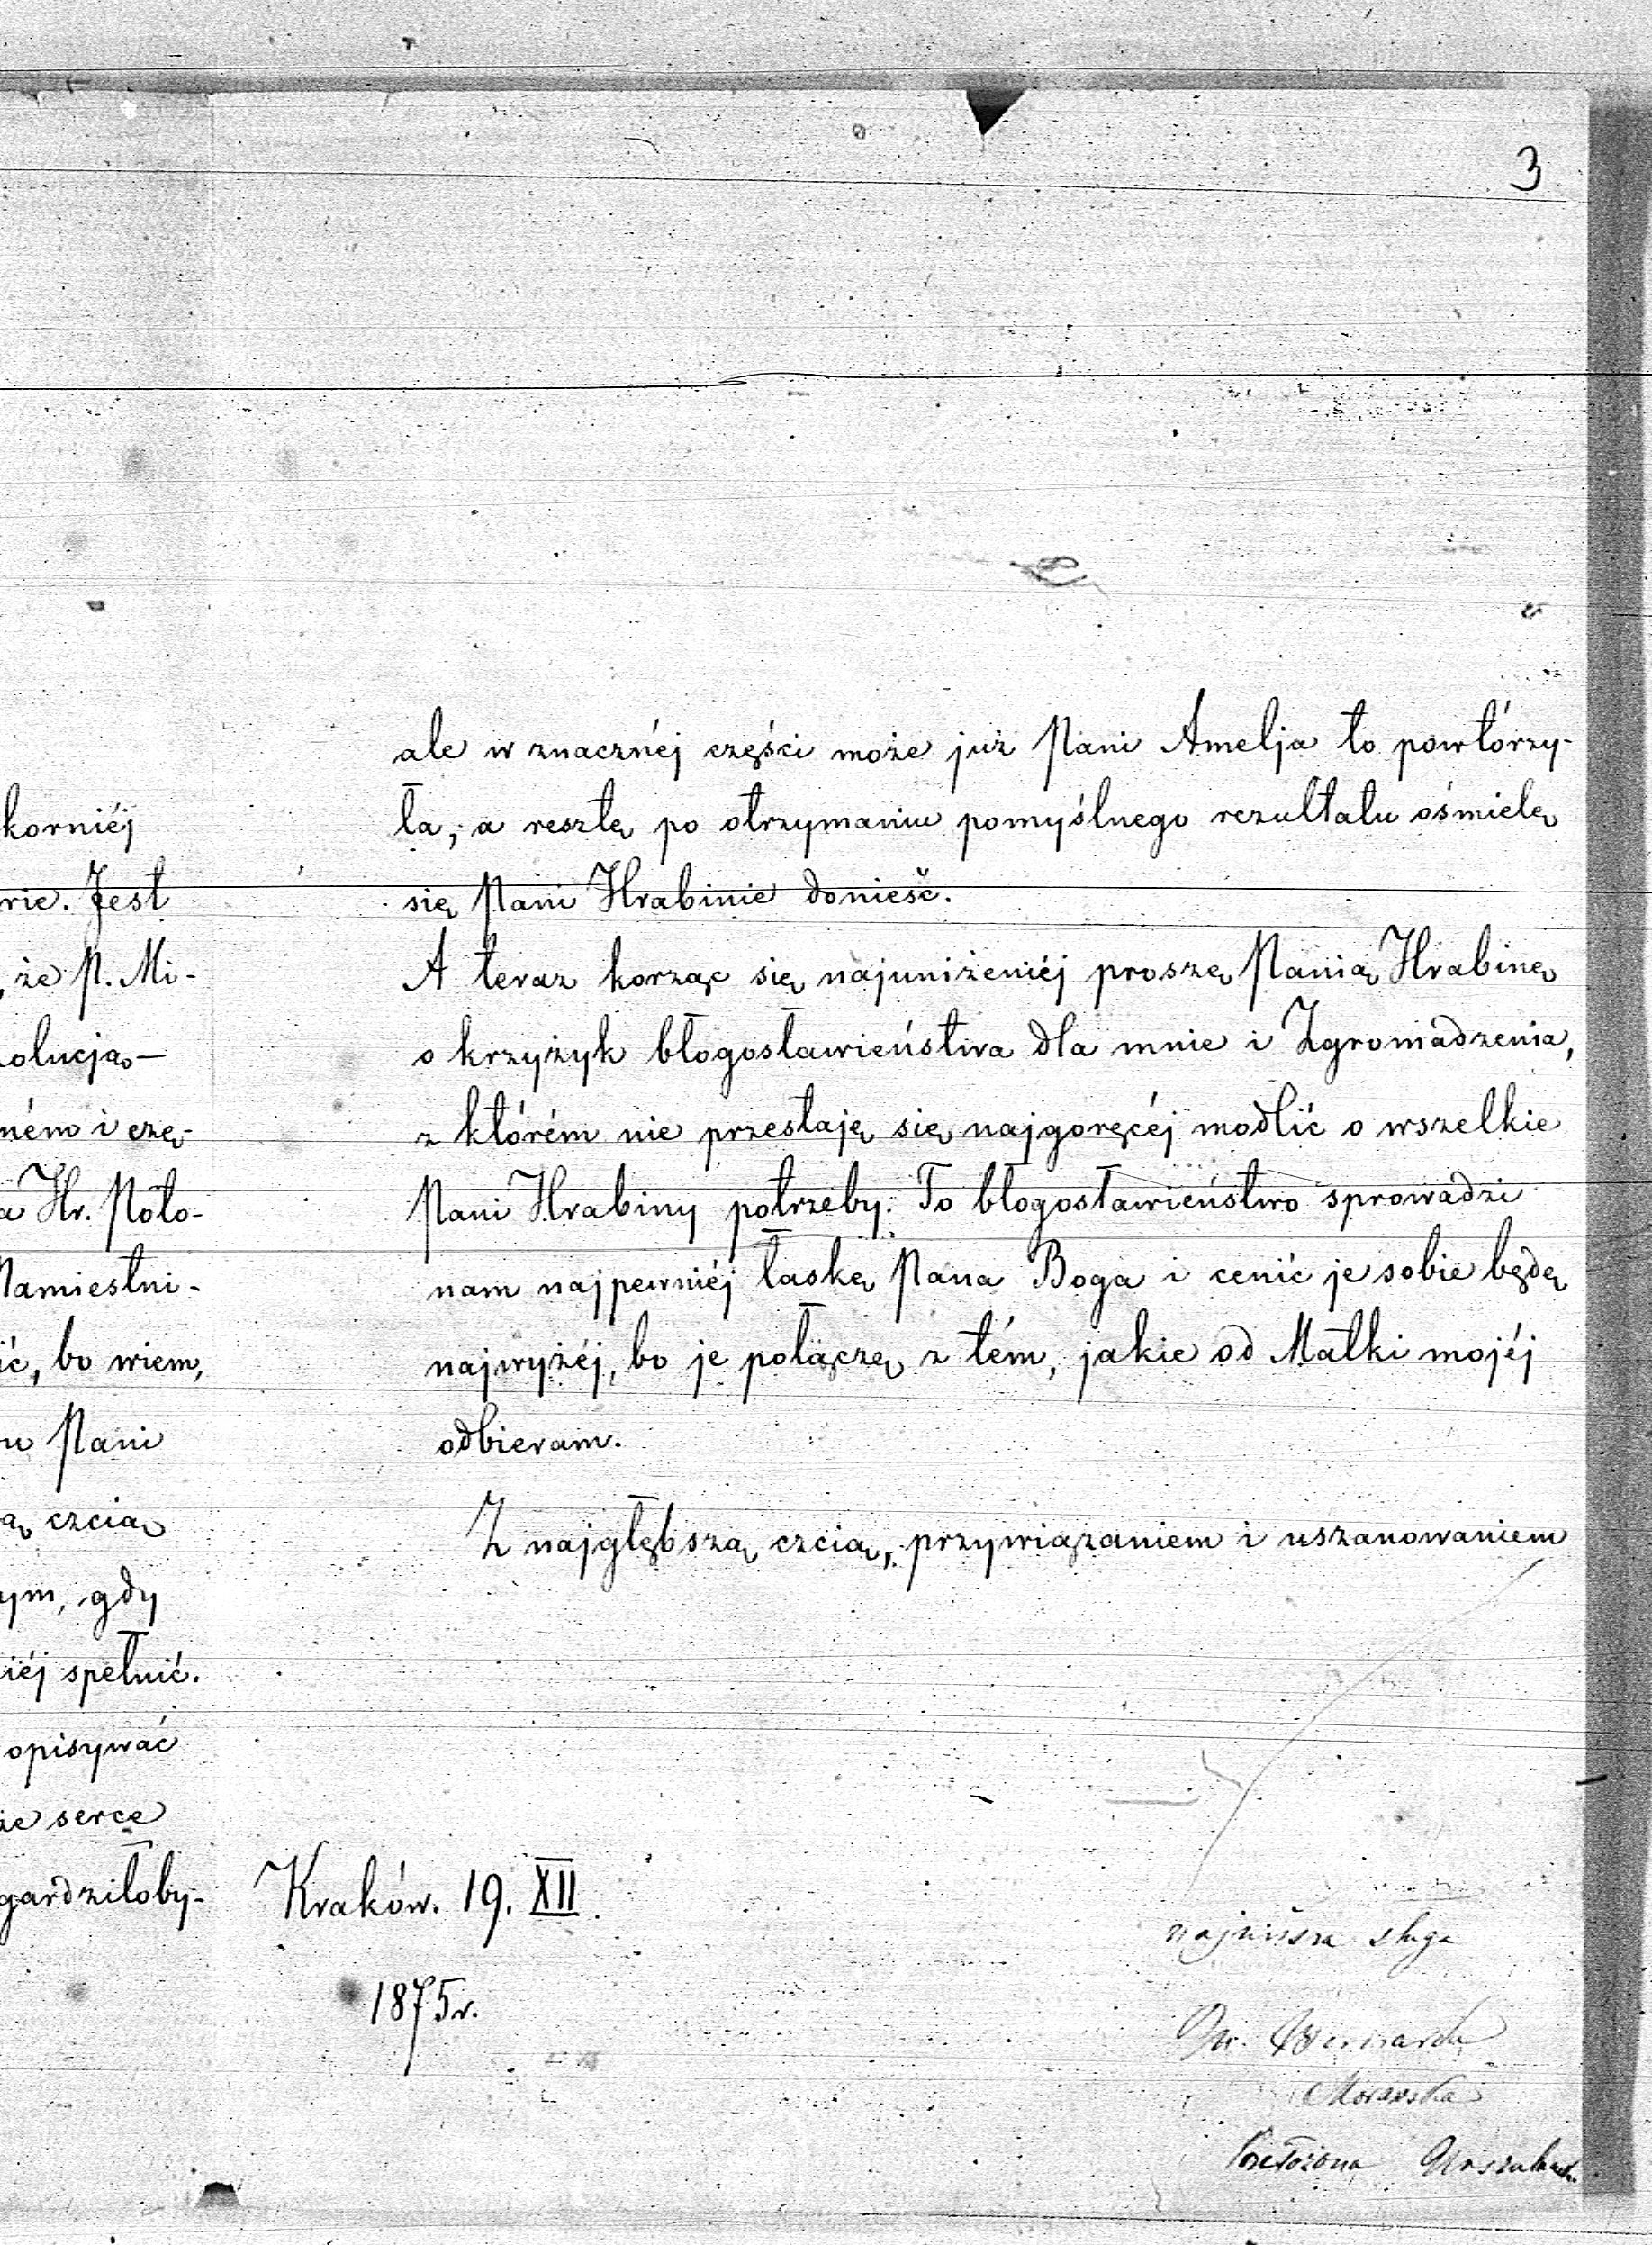 3
korniéj
rie. Jest
, że P. Mi-
olucją—
ném i czę-
a Hr. Poto-
Namiestni-
ić, bo wiem,
u Pani
ą czcią
ym, gdy
iéj spełnić.
opisywać
ie serce
gardziłoby-
ale w znacznéj części może już Pani Amelja to powtórzy-
ła, a resztę po otrzymaniu pomyślnego rezultatu ośmielę
się Pani Hrabinie donieść.
A teraz korząc się najuniżeniéj proszę Panią Hrabinę
o krzyżyk błogosławieństwa dla mnie i Zgromadzenia,
z którém nie przestaję się najgoręcéj modlić o wszelkie
Pani Hrabiny potrzeby. To błogosławieństwo sprowadzi
nam najpewniéj łaskę Pana Boga i cenić je sobie będę
najwyżéj, bo je połączę z tém, jakie od Matki mojéj
odbieram.
Z najgłębszą czcią, przywiązaniem i uszanowaniem
Kraków. 19. XII.
1875r.
najniższa sługa
M. Bernarda
Morawska
Przełożona